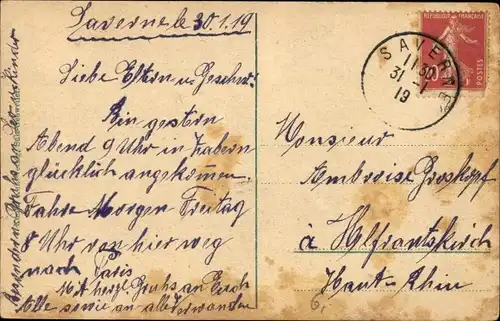 Saverne le 30.1.19
Liebe Eltern u. Geschw.
Bin gestern
Abend 9 Uhr in Zabern
glücklich angekommen
Fahre Morgen Freitag
8 Uhr von hier weg
nach Paris
Mit herzl. Gruhs an Euch
Alle sowie an alle Verwanden
REPUBLIQUE FRANÇAISE
POSTES
SAVERNE
11 30
31 -1
19
Monsieur
Ambroise Groskopf
à Helfrantskirch
Haut-Rhin